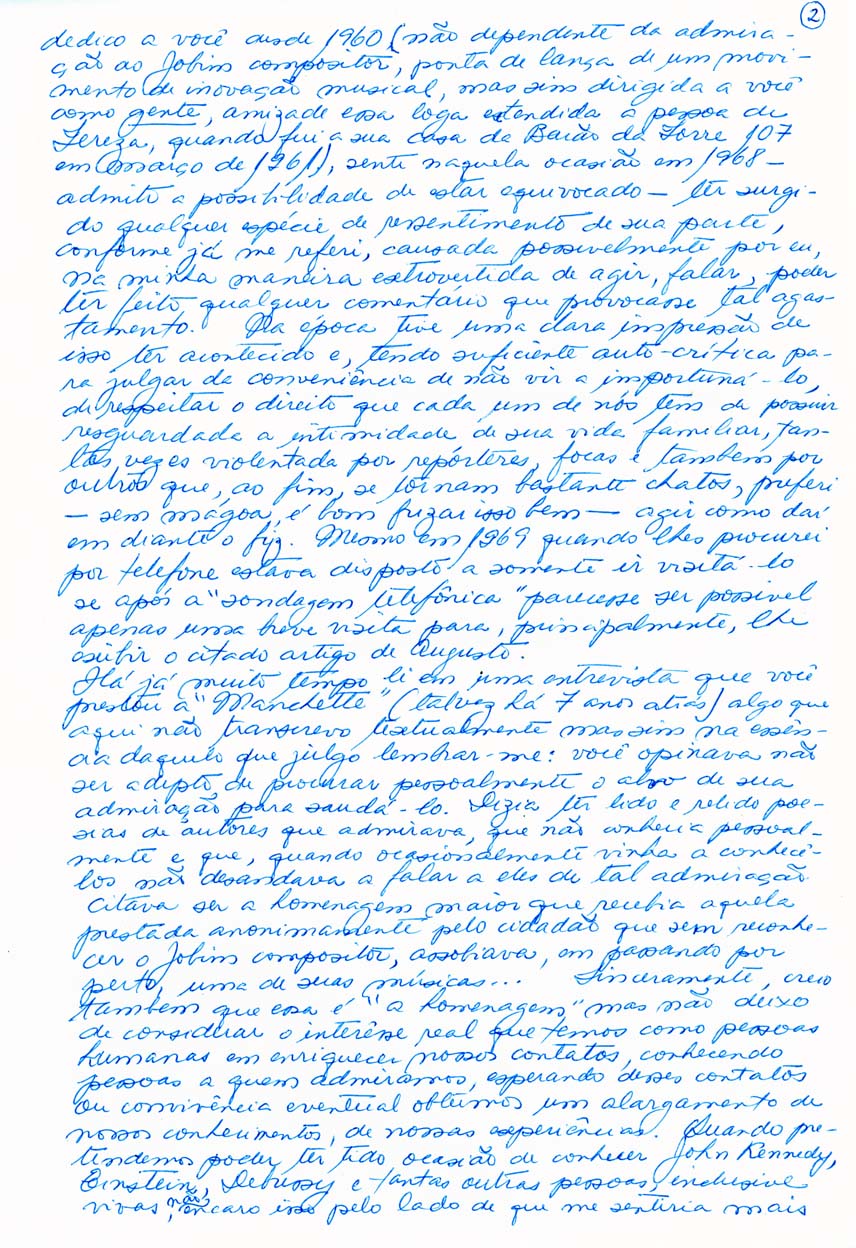 2
dedico a você desde 1960 (não dependente da admira-
ção ao Jobim compositor, ponta de lança de um movi-
mento de inovação musical, mas sim dirigida a você
como gente, amizade essa logo estendida à pessoa de
Tereza, quando fui a sua casa da Barão da Torre 107
em março de 1961), senti naquela ocasião em 1968 -
admito a possibilidade de estar equivocado - ter surgi-
do qualquer espécie de ressentimento de sua parte,
conforme já me referi, causada possivelmente por eu,
na minha maneira extrovertida de agir, falar, poder
ter feito qualquer comentário que provocasse tal agas-
tamento. Na época tive uma clara impressão de
isso ter acontecido e, tendo suficiente auto-crítica pa-
ra julgar da conveniência de não vir a importuná-lo,
de respeitar o direito que cada um de nós tem de possuir
resguardada a intimidade de sua vida familiar, tan-
tas vezes violentada por repórteres, focas e também por
outros que, ao fim, se tornam bastante chatos, preferi
- sem mágoa, é bom frizar isso bem - agir como daí
em diante o fiz. Mesmo em 1969 quando lhes procurei
por telefone estava disposto a somente ir visitá-lo
se após a "sondagem telefônica" parecesse ser possível
apenas uma breve visita para, principalmente, lhe
exibir o citado artigo de Augusto.
Há já muito tempo li em uma entrevista que você
prestou à "Manchette" (talvez há 7 anos atrás) algo que
aqui não transcrevo textualmente mas sim na essên-
cia daquilo que julgo lembrar-me: você opinava não
ser adepto de procurar pessoalmente o alvo de sua
admiração para saudá-lo. Dizia ter lido e relido poe-
sias de autores que admirava, que não conhecia pessoal-
mente e que, quando ocasionalmente vinha a conhecê-
los não desandava a falar a eles de tal admiração.
Citava ser a homenagem maior que recebia aquela
prestada anonimamente pelo cidadão que sem reconhe-
cer o Jobim compositor, assobiava, em passando por
perto, uma de suas músicas... Sinceramente, creio
também que essa é "a homenagem" mas não deixo
de considerar o interêsse real que temos como pessoas
humanas em enriquecer nossos contatos, conhecendo
pessoas a quem admiramos, esperando desses contatos
ou convivência eventual obtermos um alargamento de
nossos conhecimentos, de nossas experiências. Quando pre-
tendemos poder ter tido ocasião de conhecer John Kennedy,
Einstein, Debussy e tantas outras pessoas, inclusive
vivas, não encaro isso pelo lado de que me sentiria mais